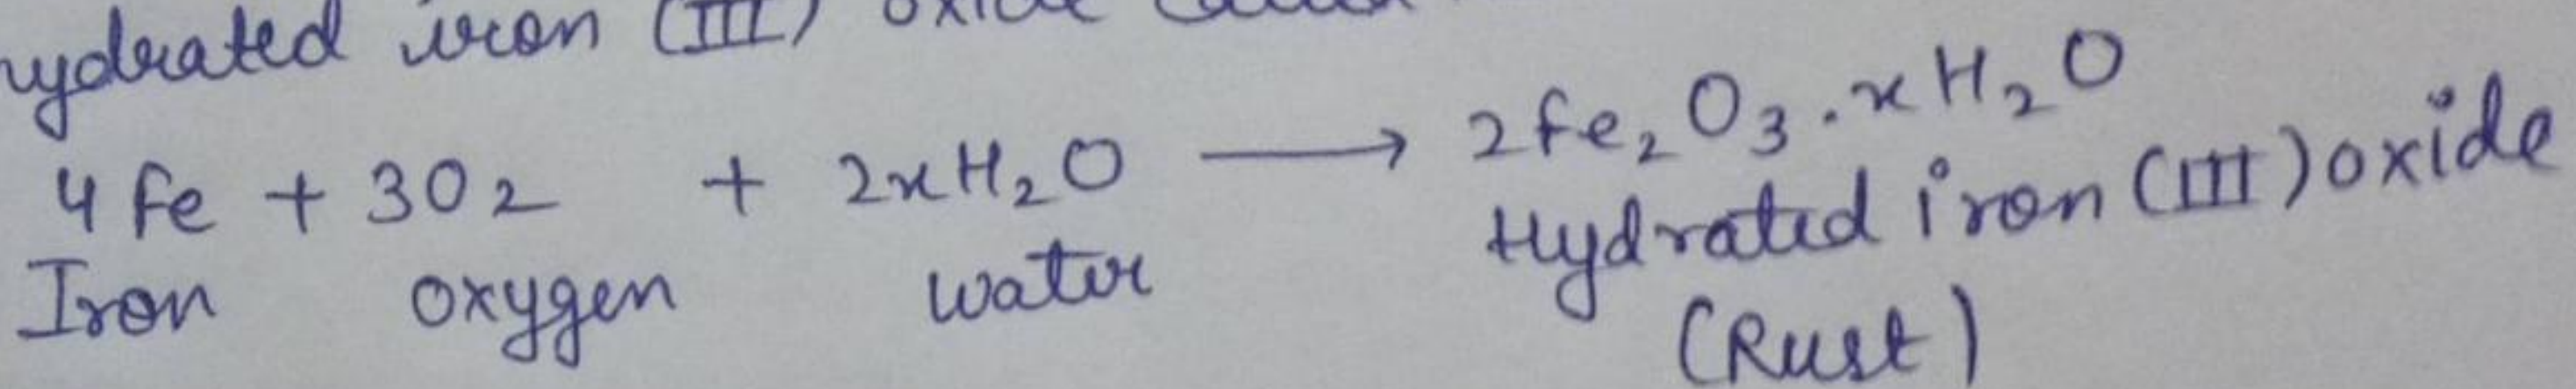 ydrated iron (III) oxide
4Fe + 3O₂ + 2xH₂O ⟶ 2Fe₂O₃.xH₂O
Iron oxygen water Hydrated iron (III) oxide
(Rust)